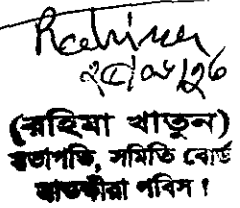 Rahima
(রহিমা খাতুন)
সভাপতি, সমিতি বোর্ড
সাতক্ষীরা পবিস।